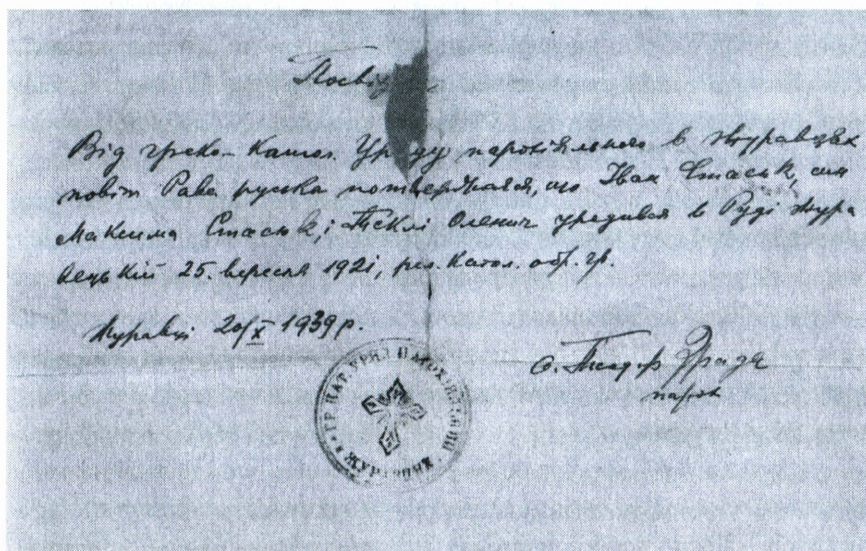 Від греко-катол. Уряду парохіяльного в Журавцях
повіт Рава руська потверджаєся, що Іван Стаськ, син
Максима Стаськ, і Теклі Оленич уродився в Руді Жура
вецькій 25. вересня 1921, рел. катол. обр. гр.
Журавці 20/X 1939 р.
о. Теодор
парох
ГР. КАТ. УРЯД ПАРОХ